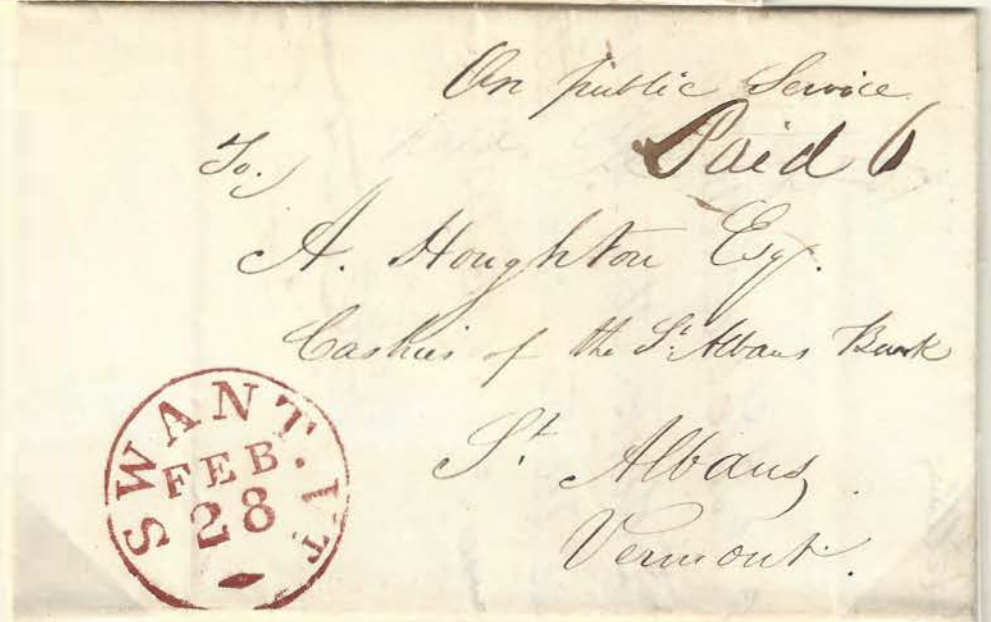 On public Service
Paid 6
To,
A. Houghton Esq.
Cashier of the St. Albans Bank
St. Albans,
Vermont.
SWANT. VT.
FEB.
28